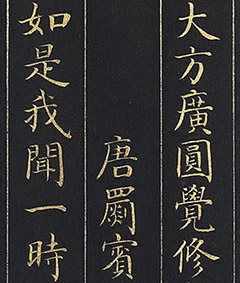 大方廣圓覺修
唐罽賓
如是我聞一時